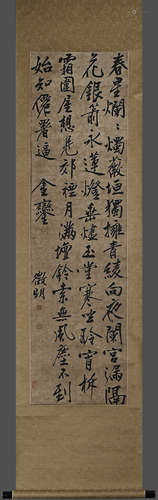 春星爛〻燭薇垣獨擁青綾向夜闌宮漏隔
花銀箭永蓮燈垂燼玉堂寒坐聆宵柝
霜圍屋想見郊禋月滿壇鈴索無風塵不到
始知僊署逼金鑾 徵明